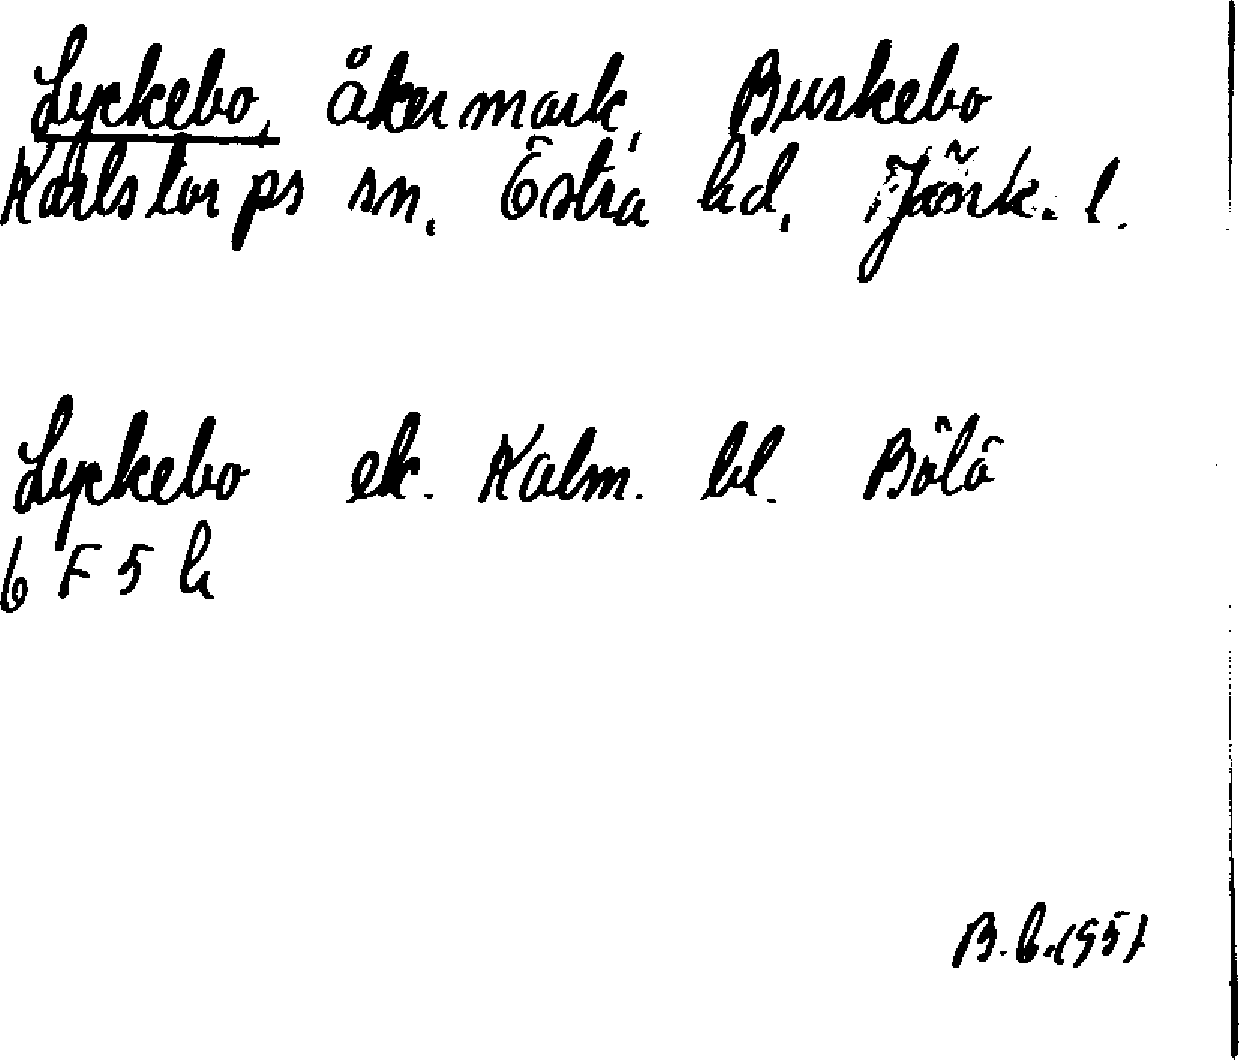 Lyckebo, åkermark, Buskebo
Karlstorps sn, Östra hd, Jönk. l.
Lyckebo ek. Kalm. bl. Bölö
6 F 5 h